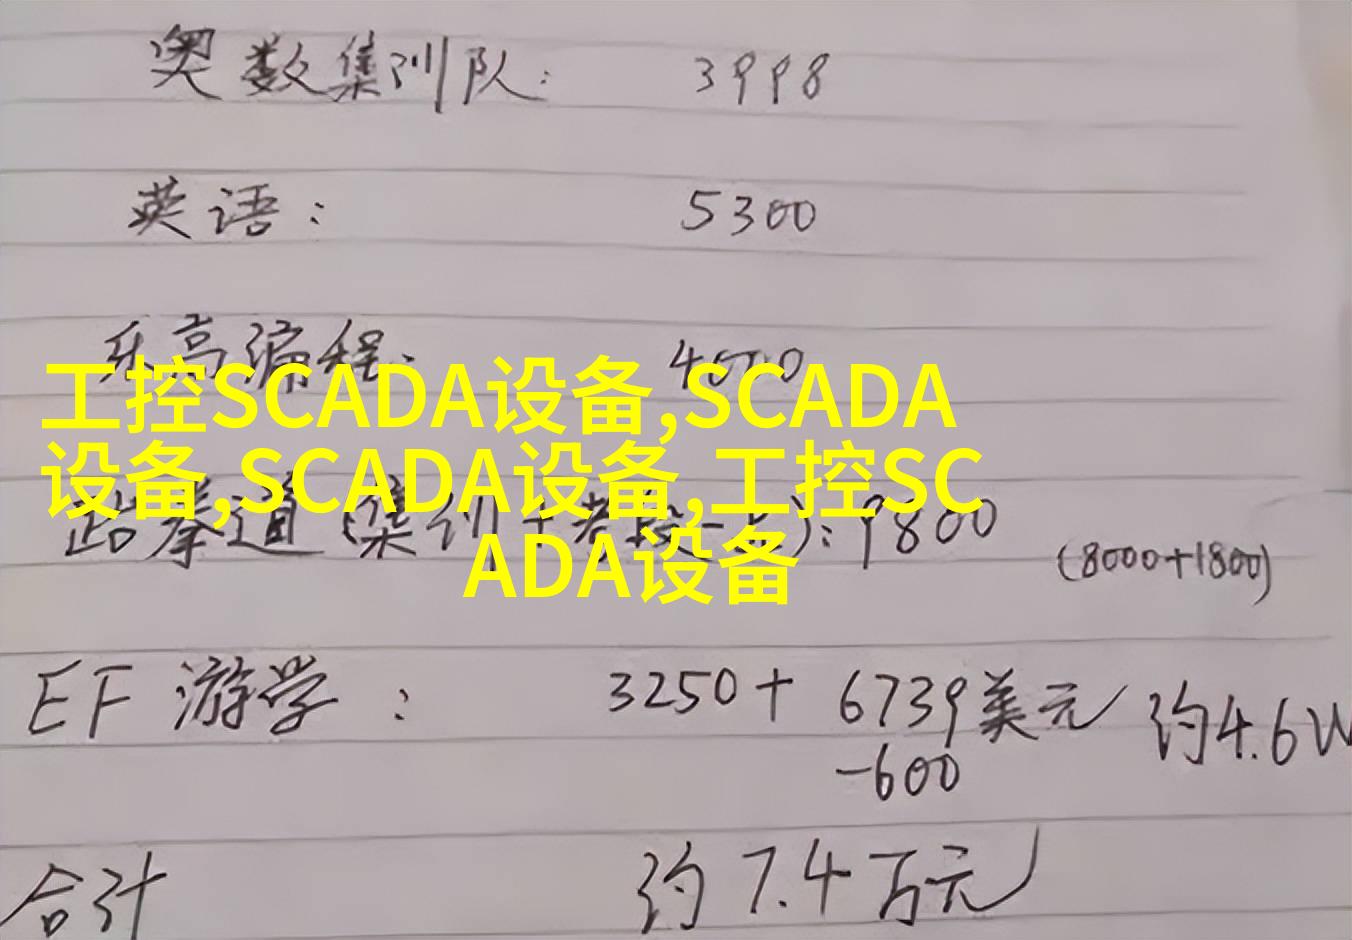 奥数集训队: 3998
英语: 5300
乐高编程: 4000
工控SCADA设备,SCADA
设备,SCADA设备,工控SC
ADA设备
跆拳道(集训+考段一点): 9800 (8000+1800)
EF 游学: 3250+ 6739美元 约4.6W
-600
合计 约7.4万元